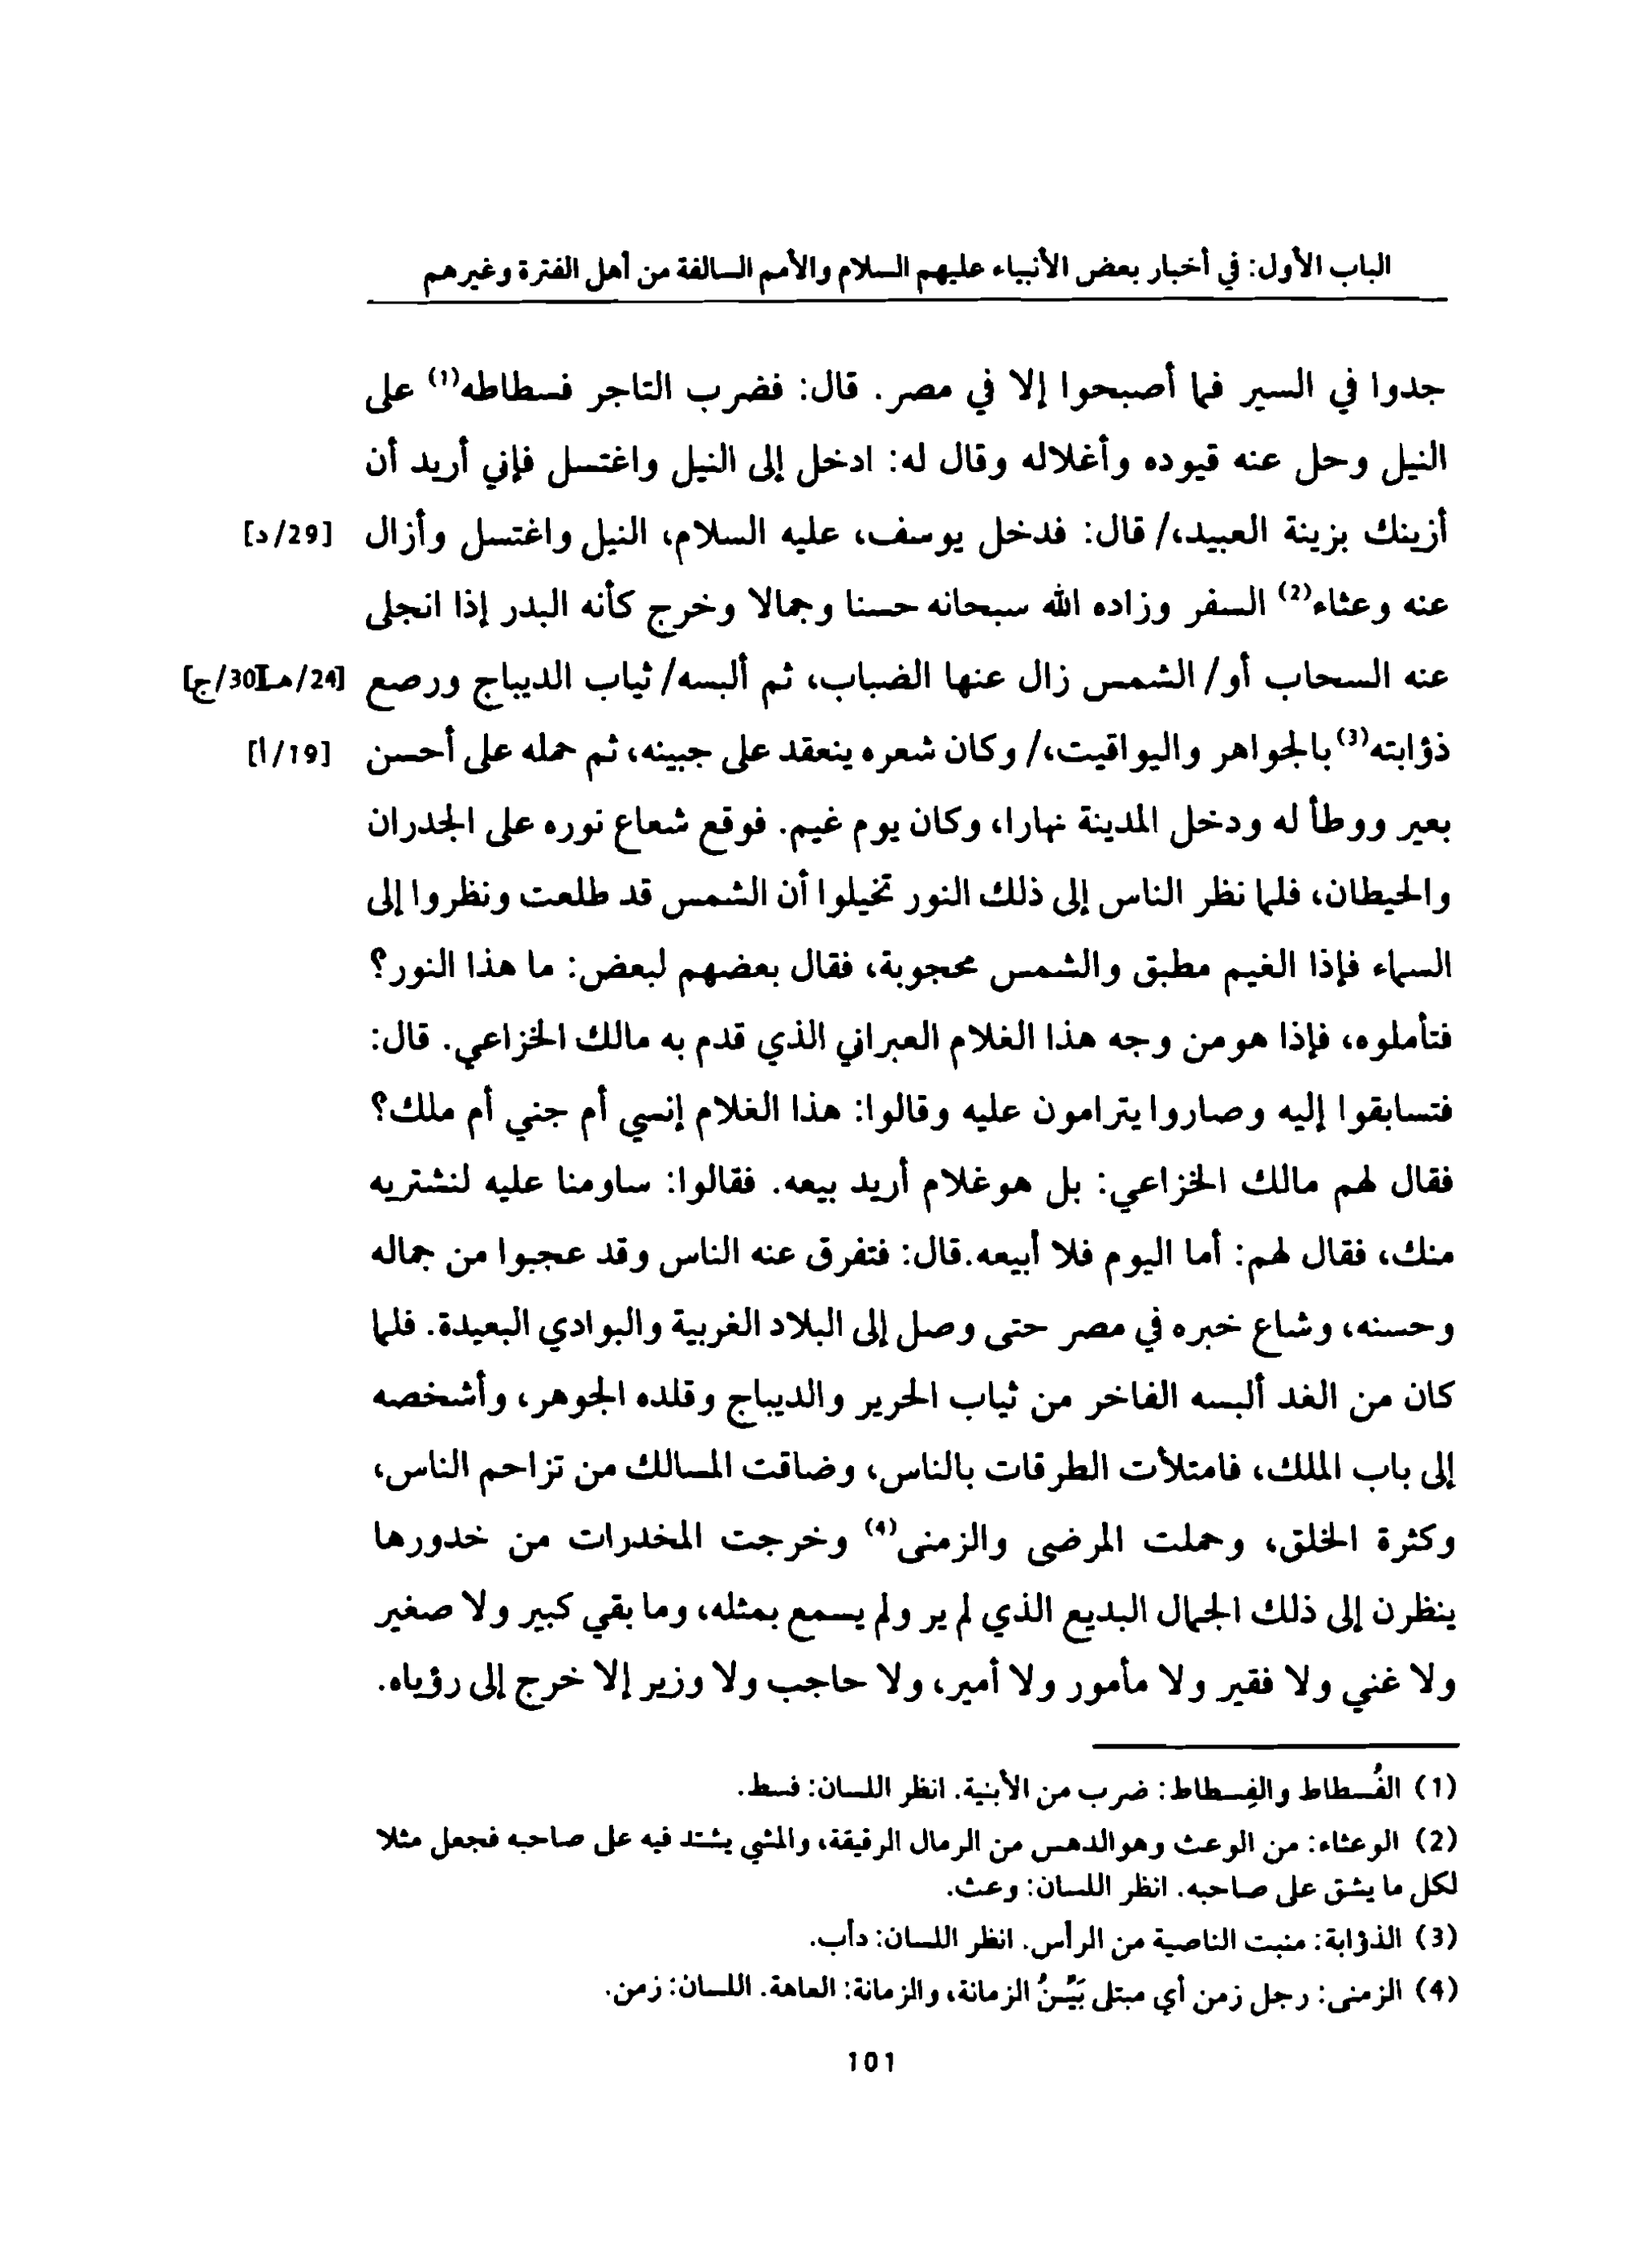 الباب الأول: في أخبار بعض الأنبياء عليهم السلام والأمم السالفة من أهل الفترة وغيرهم
جدوا في السير فما أصبحوا إلا في مصر. قال: فضرب التاجر فسطاطه(1) على
النيل وحل عنه قيوده وأغلاله وقال له: ادخل إلى النيل واغتسل فإني أريد أن
أزينك بزينة العبيد،/ قال: فدخل يوسف، عليه السلام، النيل واغتسل وأزال [29/د]
عنه وعثاء(2) السفر وزاده الله سبحانه حسنا وجمالا وخرج كأنه البدر إذا انجلى
عنه السحاب أو/ الشمس زال عنها الضباب، ثم ألبسه/ ثياب الديباج ورصع [24/هـ][30/ج]
ذؤابته(3) بالجواهر واليواقيت،/ وكان شعره ينعقد على جبينه، ثم حمله على أحسن [19/أ]
بعير ووطأ له ودخل المدينة نهارا، وكان يوم غيم. فوقع شعاع نوره على الجدران
والحيطان، فلما نظر الناس إلى ذلك النور تخيلوا أن الشمس قد طلعت ونظروا إلى
السماء فإذا الغيم مطبق والشمس محجوبة، فقال بعضهم لبعض: ما هذا النور؟
فتأملوه، فإذا هو من وجه هذا الغلام العبراني الذي قدم به مالك الخزاعي. قال:
فتسابقوا إليه وصاروا يترامون عليه وقالوا: هذا الغلام إنسي أم جني أم ملك؟
فقال لهم مالك الخزاعي: بل هو غلام أريد بيعه. فقالوا: ساومنا عليه لنشتريه
منك، فقال لهم: أما اليوم فلا أبيعه.قال: فتفرق عنه الناس وقد عجبوا من جماله
وحسنه، وشاع خبره في مصر حتى وصل إلى البلاد الغربية والبوادي البعيدة. فلما
كان من الغد ألبسه الفاخر من ثياب الحرير والديباج وقلده الجوهر، وأشخصه
إلى باب الملك، فامتلأت الطرقات بالناس، وضاقت المسالك من تزاحم الناس،
وكثرة الخلق، وحملت المرضى والزمنى(4) وخرجت المخدرات من خدورها
ينظرن إلى ذلك الجمال البديع الذي لم ير ولم يسمع بمثله، وما بقي كبير ولا صغير
ولا غني ولا فقير ولا مأمور ولا أمير، ولا حاجب ولا وزير إلا خرج إلى رؤياه.
(1) الفُسطاط والفِسطاط: ضرب من الأبنية. انظر اللسان: فسط.
(2) الوعثاء: من الوعث وهو الدهس من الرمال الرقيقة، والمشي يشتد فيه على صاحبه فجعل مثلا
لكل ما يشق على صاحبه. انظر اللسان: وعث.
(3) الذؤابة: منبت الناصية من الرأس. انظر اللسان: دأب.
(4) الزمنى: رجل زمن أي مبتلى بَيِّنُ الزمانة، والزمانة: العاهة. اللسان: زمن.
101